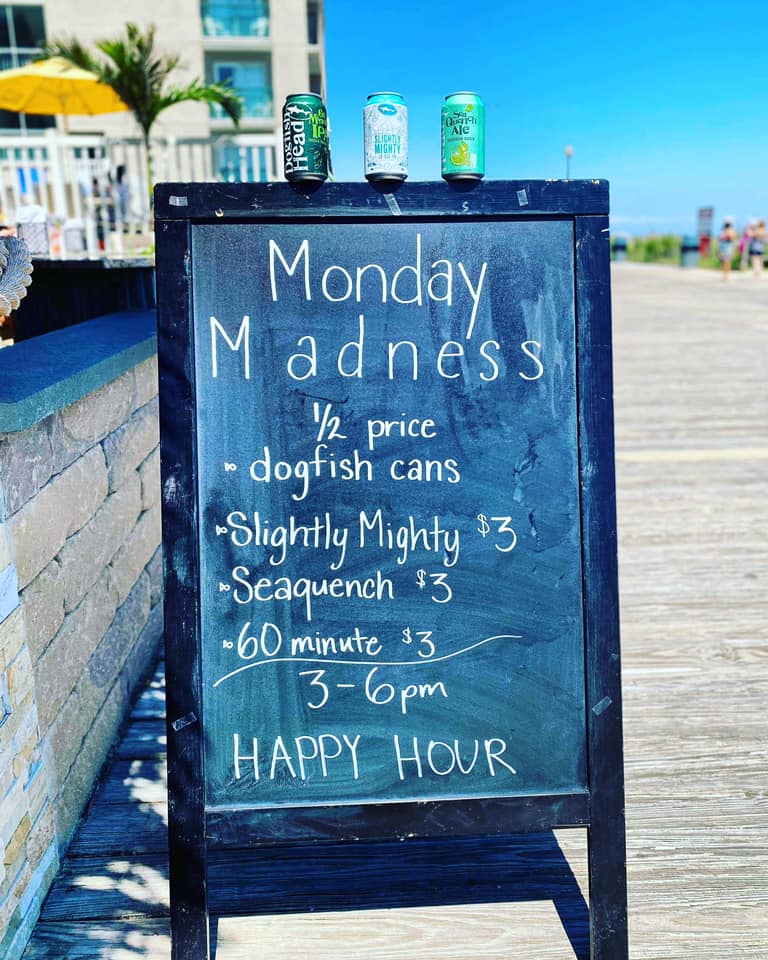 Dogfish
Head
60
Minute
IPA
SLIGHTLY
MIGHTY
Sea
Quench
Ale
Monday
Madness
1/2 price
dogfish cans
Slightly Mighty $3
Seaquench $3
60 minute $3
3-6pm
HAPPY HOUR